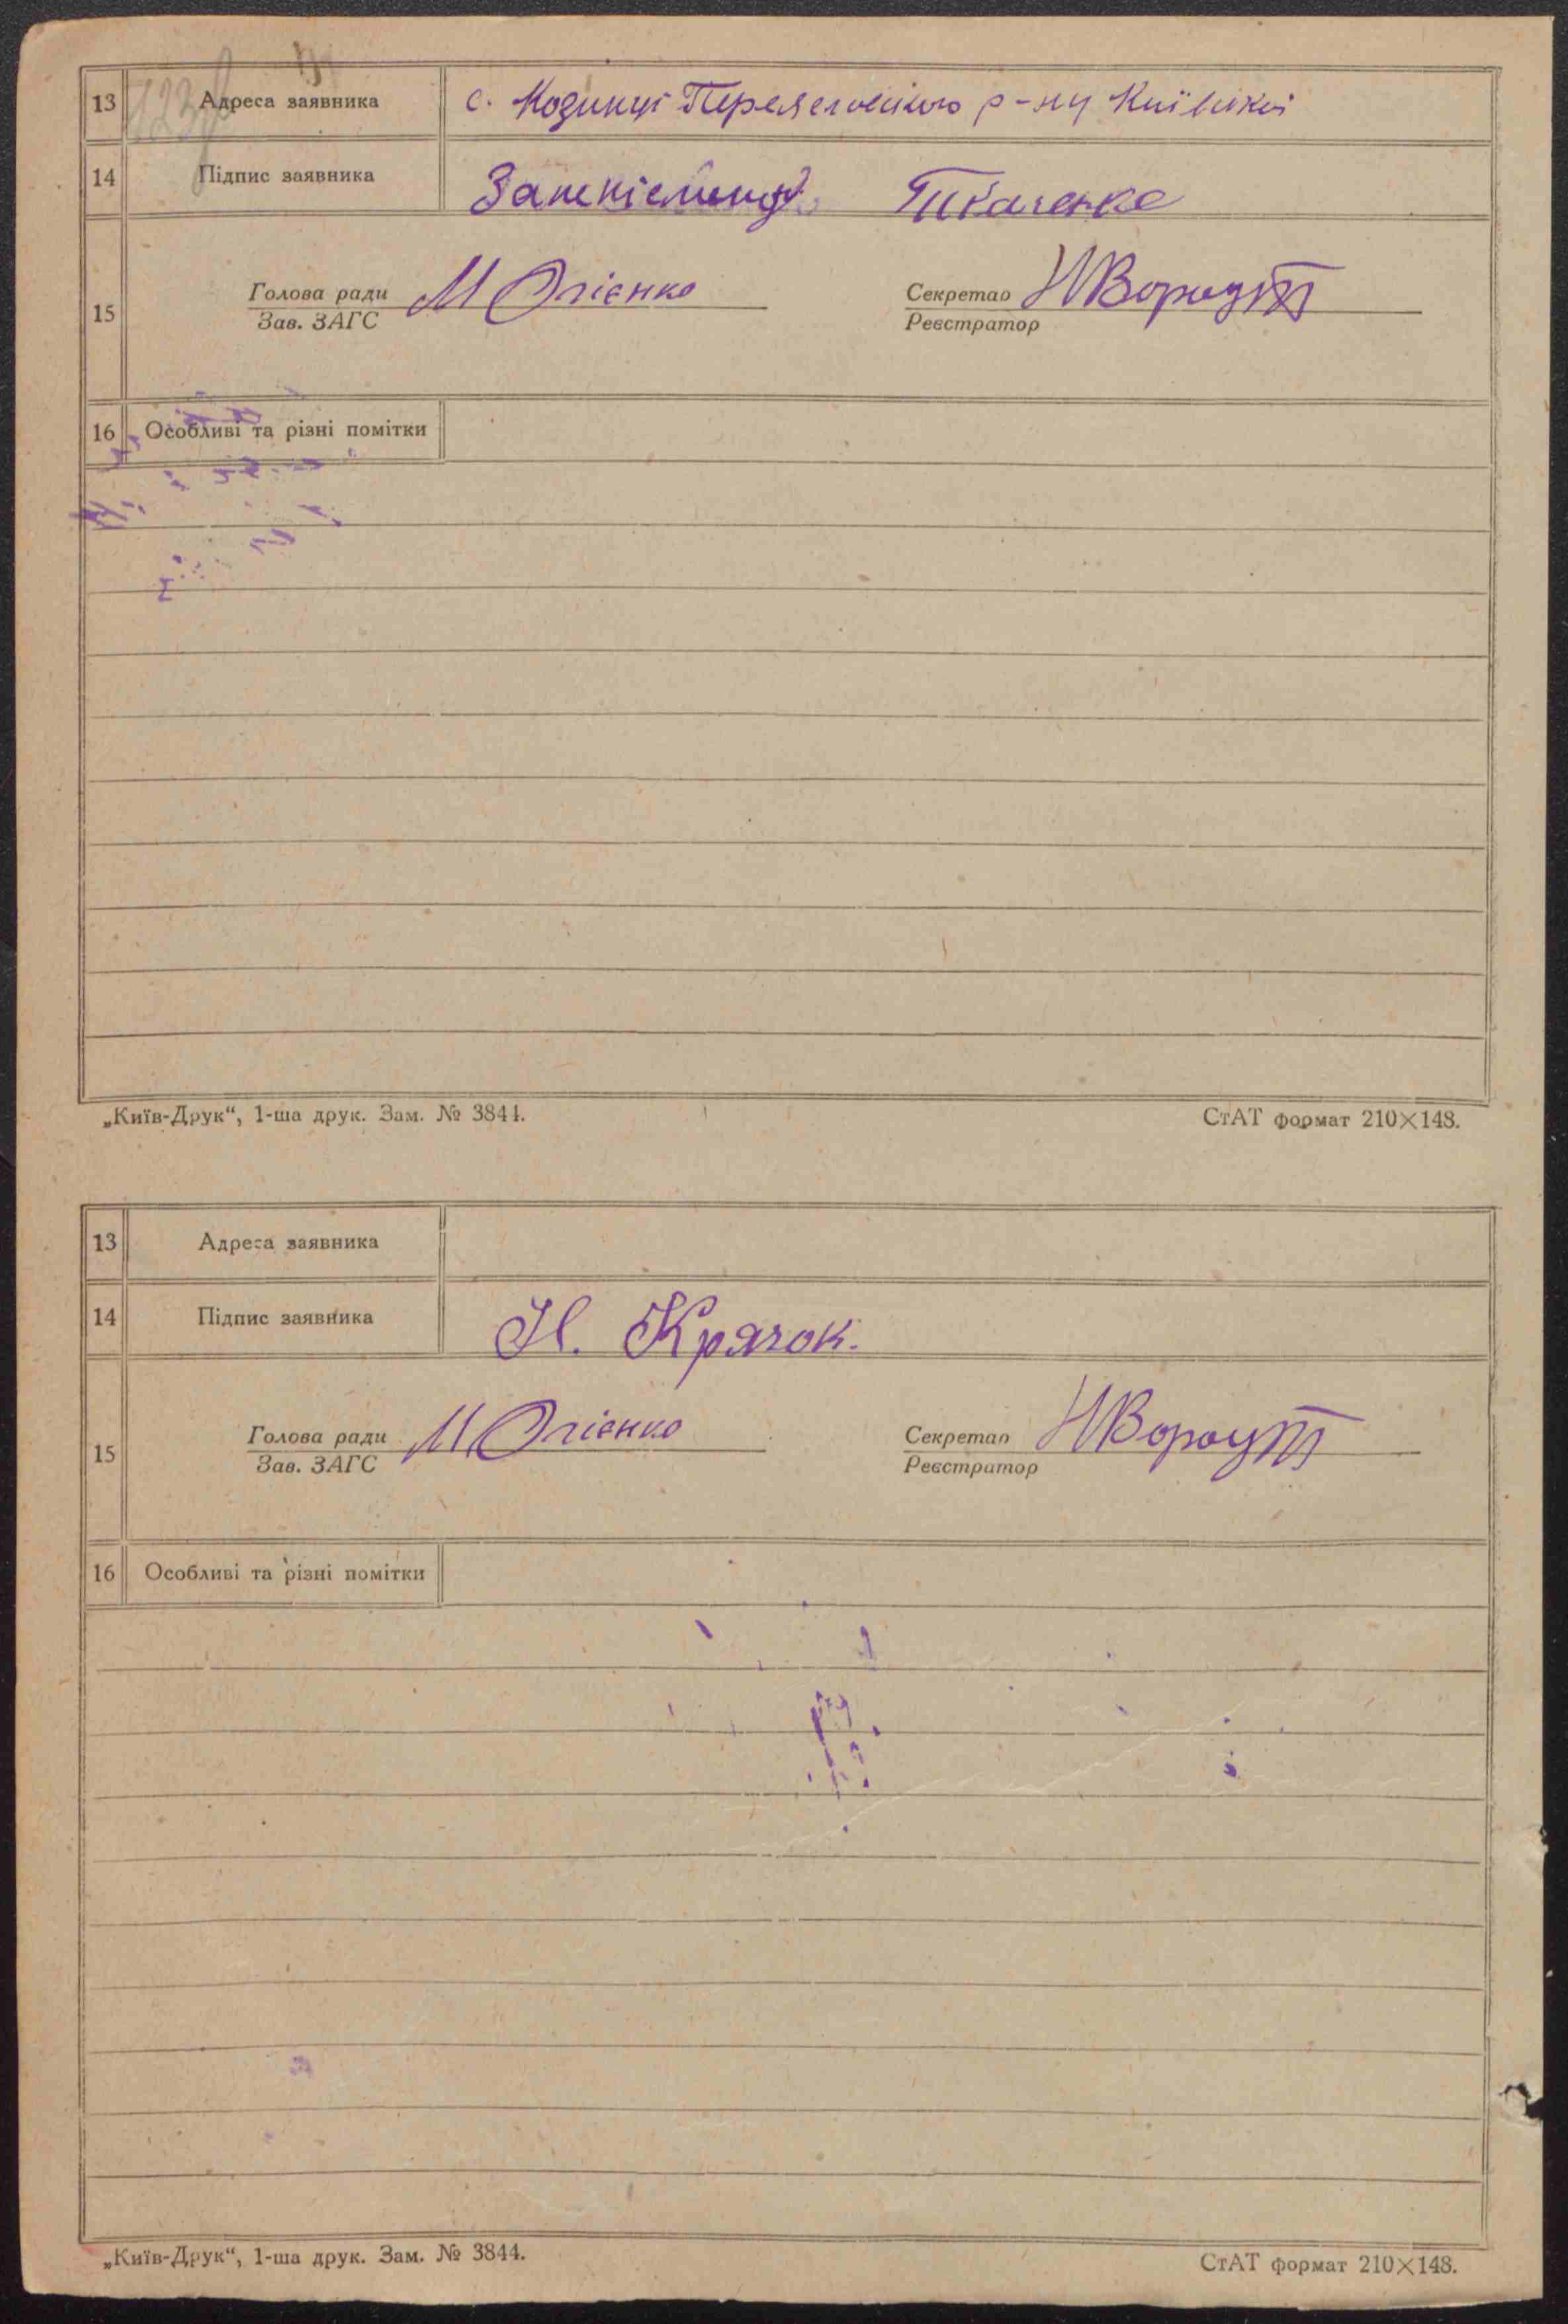 13 Адреса заявника с. Козинці Переяславського р-ну Київської
14 Підпис заявника Ткаченко
Голова ради М Олієнко Секретар
15
Зав. ЗАГС Реєстратор
16 Особливі та різні помітки
„Київ-Друк“, 1-ша друк. Зам. № 3844. СтАТ формат 210×148.
13 Адреса заявника
14 Підпис заявника Н. Крячок.
Голова ради М Олієнко Секретар
15
Зав. ЗАГС Реєстратор
16 Особливі та різні помітки
„Київ-Друк“, 1-ша друк. Зам. № 3844. СтАТ формат 210×148.